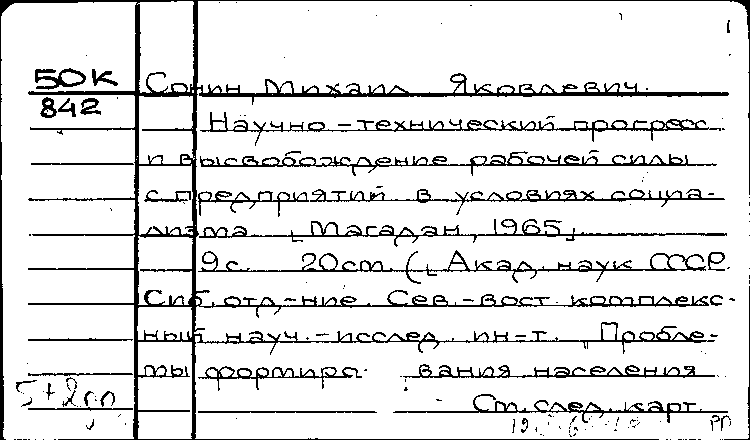 50К
842
Сонин, Михаил Яковлевич.
Научно-технический прогресс
и высвобождение рабочей силы
с предприятий в условиях социа-
лизма. [Магадан, 1965]
9с. 20см. ([Акад. наук СССР.
Сиб. отд-ние. Сев.-вост. комплекс-
ный науч.-исслед. ин-т. Пробле-
мы формиро- вания населения
См. след. карт.
5+2
РП